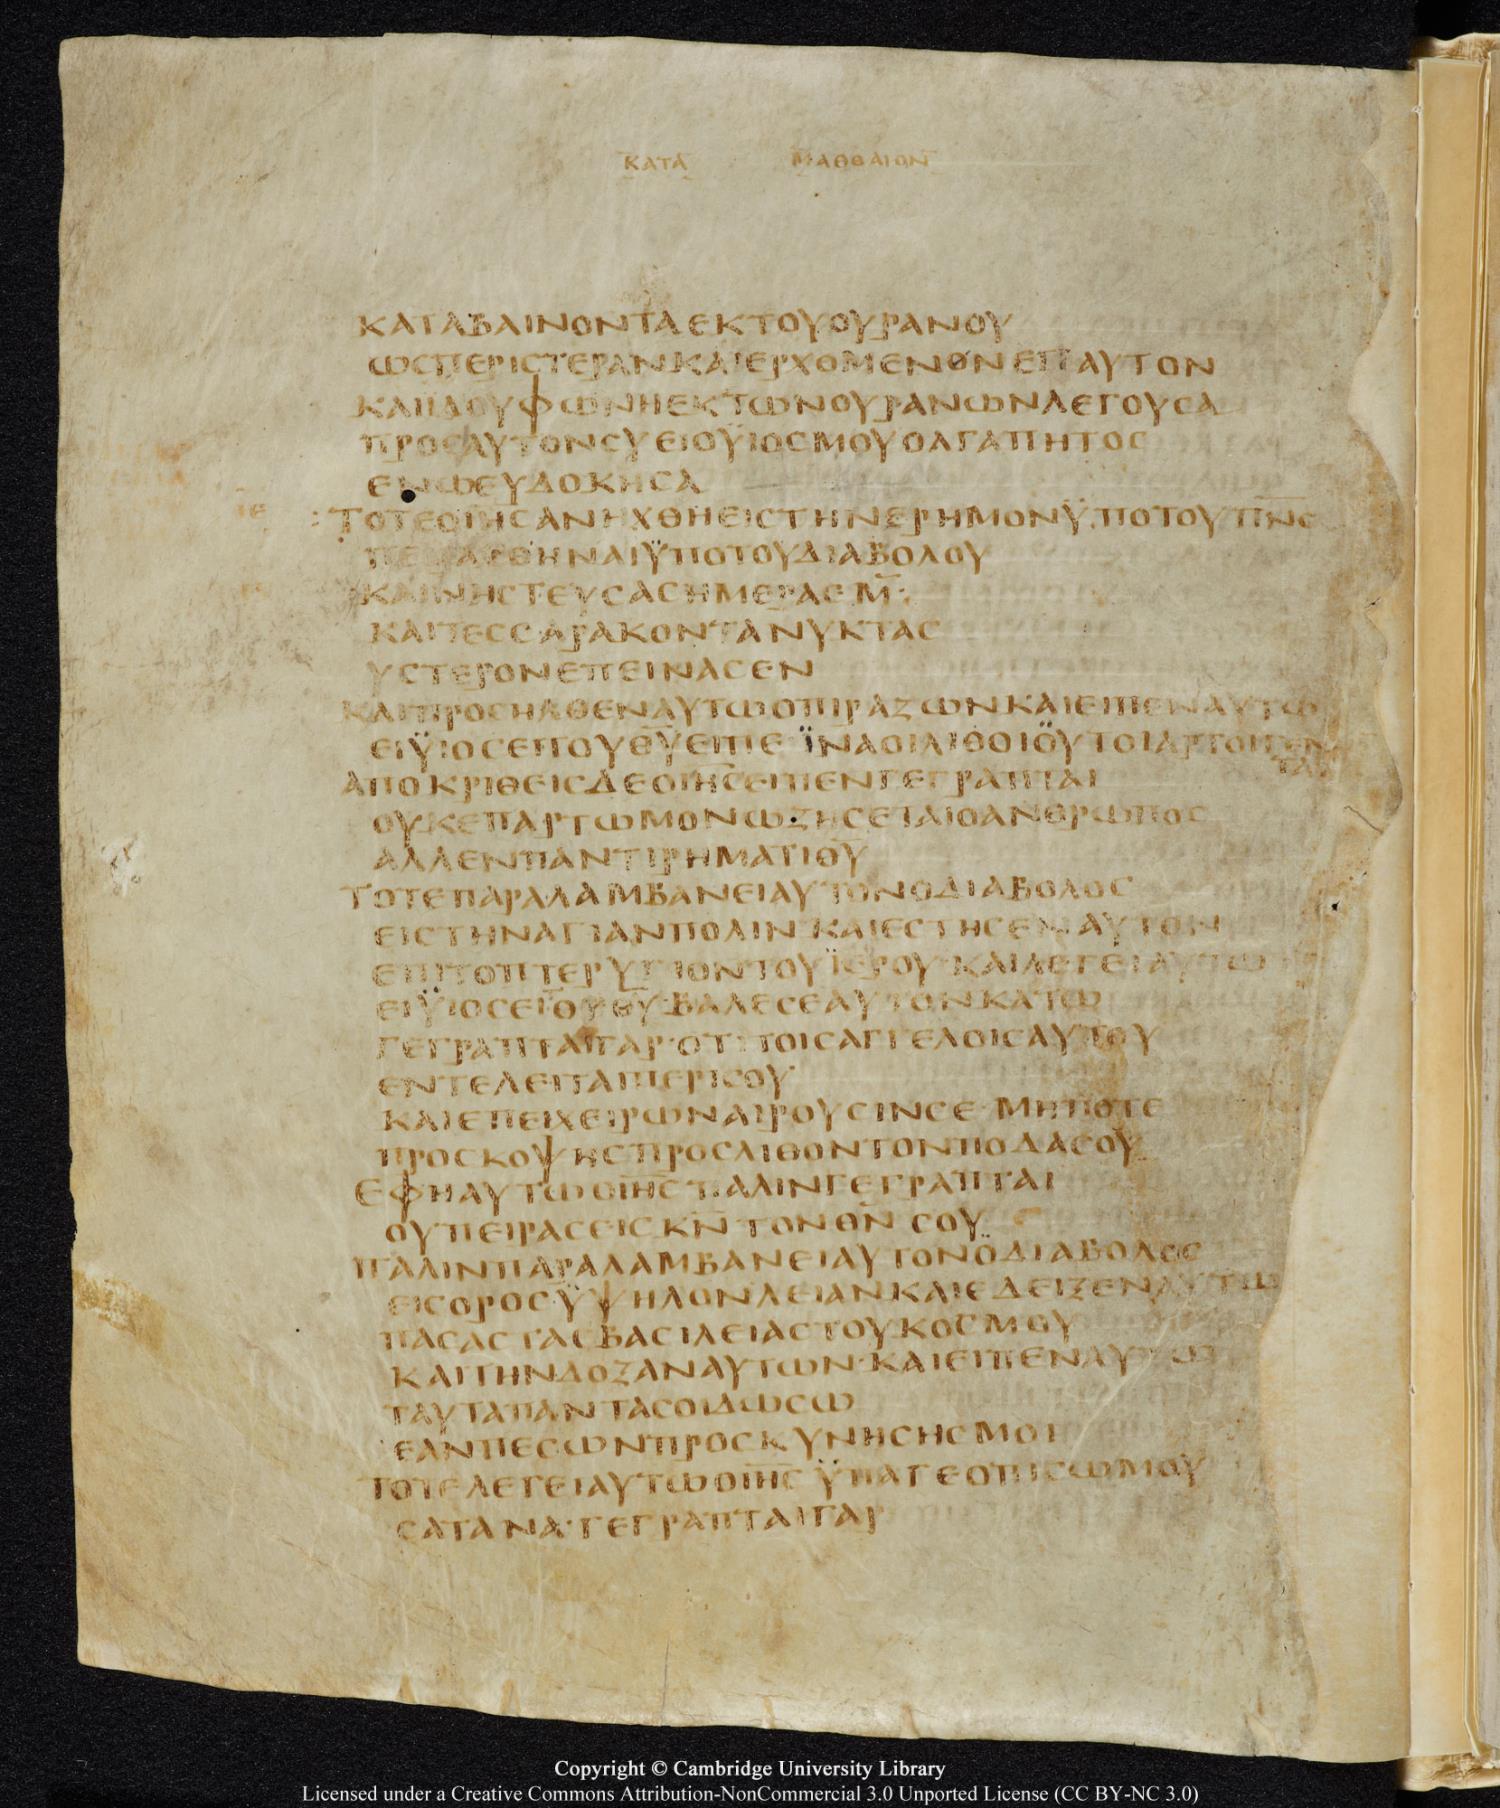 ΚΑΤΑ ΜΑΘΘΑΙΟΝ
ΚΑΤΑΒΑΙΝΟΝΤΑΕΚΤΟΥΟΥΡΑΝΟΥ
ΩϹΠΕΡΙϹΤΕΡΑΝΚΑΙΕΡΧΟΜΕΝΟΝΕΙϹΑΥΤΟΝ
ΚΑΙΙΔΟΥΦΩΝΗΕΚΤΩΝΟΥΡΑΝΩΝΛΕΓΟΥϹΑ
ΠΡΟϹΑΥΤΟΝϹΥΕΙΟΫΙΟϹΜΟΥΟΑΓΑΠΗΤΟϹ
ΕΝΩΕΥΔΟΚΗϹΑ
ΙΕ :ΤΟΤΕΟΙΗϹΑΝΗΧΘΗΕΙϹΤΗΝΕΡΗΜΟΝΫΠΟΤΟΥΠΝϹ
ΠΕΙΡΑϹΘΗΝΑΙΫΠΟΤΟΥΔΙΑΒΟΛΟΥ
ΚΑΙΝΗϹΤΕΥϹΑϹΗΜΕΡΑϹΜ̅·
ΚΑΙΤΕϹϹΑΡΑΚΟΝΤΑΝΥΚΤΑϹ
ΥϹΤΕΡΟΝΕΠΕΙΝΑϹΕΝ
ΚΑΙΠΡΟϹΗΛΘΕΝΑΥΤΩΟΠΙΡΑΖΩΝΚΑΙΕΙΠΕΝΑΥΤΩ
ΕΙΫΙΟϹΕΙΤΟΥΘΥ̅ΕΙΠΕ·ΪΝΑΟΙΛΙΘΟΙΟΥΤΟΙΑΡΤΟΙΓΕΝΩΝ
ΤΑΙ
ΑΠΟΚΡΙΘΕΙϹΔΕΟΙΗϹ̅ΕΙΠΕΝΓΕΓΡΑΠΤΑΙ
ΟΥΚΕΠΑΡΤΩΜΟΝΩΖΗϹΕΤΑΙΟΑΝΘΡΩΠΟϹ
ΑΛΛΕΝΠΑΝΤΙΡΗΜΑΤΙΘΥ̅
ΤΟΤΕΠΑΡΑΛΑΜΒΑΝΕΙΑΥΤΟΝΟΔΙΑΒΟΛΟϹ
ΕΙϹΤΗΝΑΓΙΑΝΠΟΛΙΝ·ΚΑΙΕϹΤΗϹΕΝΑΥΤΟΝ
ΕΠΙΤΟΠΤΕΡΥΓΙΟΝΤΟΥΪΕΡΟΥ·ΚΑΙΛΕΓΕΙΑΥΤΩ
ΕΙΫΙΟϹΕΙΤΟΥΘΥ̅·ΒΑΛΕϹΕΑΥΤΟΝΚΑΤΩ
ΓΕΓΡΑΠΤΑΙΓΑΡ·ΟΤΙΤΟΙϹΑΓΓΕΛΟΙϹΑΥΤΟΥ
ΕΝΤΕΛΕΙΤΑΙΠΕΡΙϹΟΥ
ΚΑΙΕΠΕΙΧΕΙΡΩΝΑΙΡΟΥϹΙΝϹΕ·ΜΗΠΟΤΕ
ΠΡΟϹΚΟΨΗϹΠΡΟϹΛΙΘΟΝΤΟΝΠΟΔΑϹΟΥ
ΕΦΗΑΥΤΩΟΙΗϹ̅ΠΑΛΙΝΓΕΓΡΑΠΤΑΙ
ΟΥΠΕΙΡΑϹΕΙϹΚΝ̅ΤΟΝΘΝ̅ϹΟΥ
ΠΑΛΙΝΠΑΡΑΛΑΜΒΑΝΕΙΑΥΤΟΝΟΔΙΑΒΟΛΟϹ
ΕΙϹΟΡΟϹ·ΫΨΗΛΟΝΛΕΙΑΝΚΑΙΕΔΕΙΞΕΝΑΥΤΩ
ΠΑϹΑϹΤΑϹΒΑϹΙΛΕΙΑϹΤΟΥΚΟϹΜΟΥ
ΚΑΙΤΗΝΔΟΞΑΝΑΥΤΩΝ·ΚΑΙΕΙΠΕΝΑΥΤΩ
ΤΑΥΤΑΠΑΝΤΑϹΟΙΔΩϹΩ
ΕΑΝΠΕϹΩΝΠΡΟϹΚΥΝΗϹΗϹΜΟΙ
ΤΟΤΕΛΕΓΕΙΑΥΤΩΟΙΗϹ̅ΫΠΑΓΕΟΠΙϹΩΜΟΥ
ϹΑΤΑΝΑ·ΓΕΓΡΑΠΤΑΙΓΑΡ
Copyright © Cambridge University Library
Licensed under a Creative Commons Attribution-NonCommercial 3.0 Unported License (CC BY-NC 3.0)